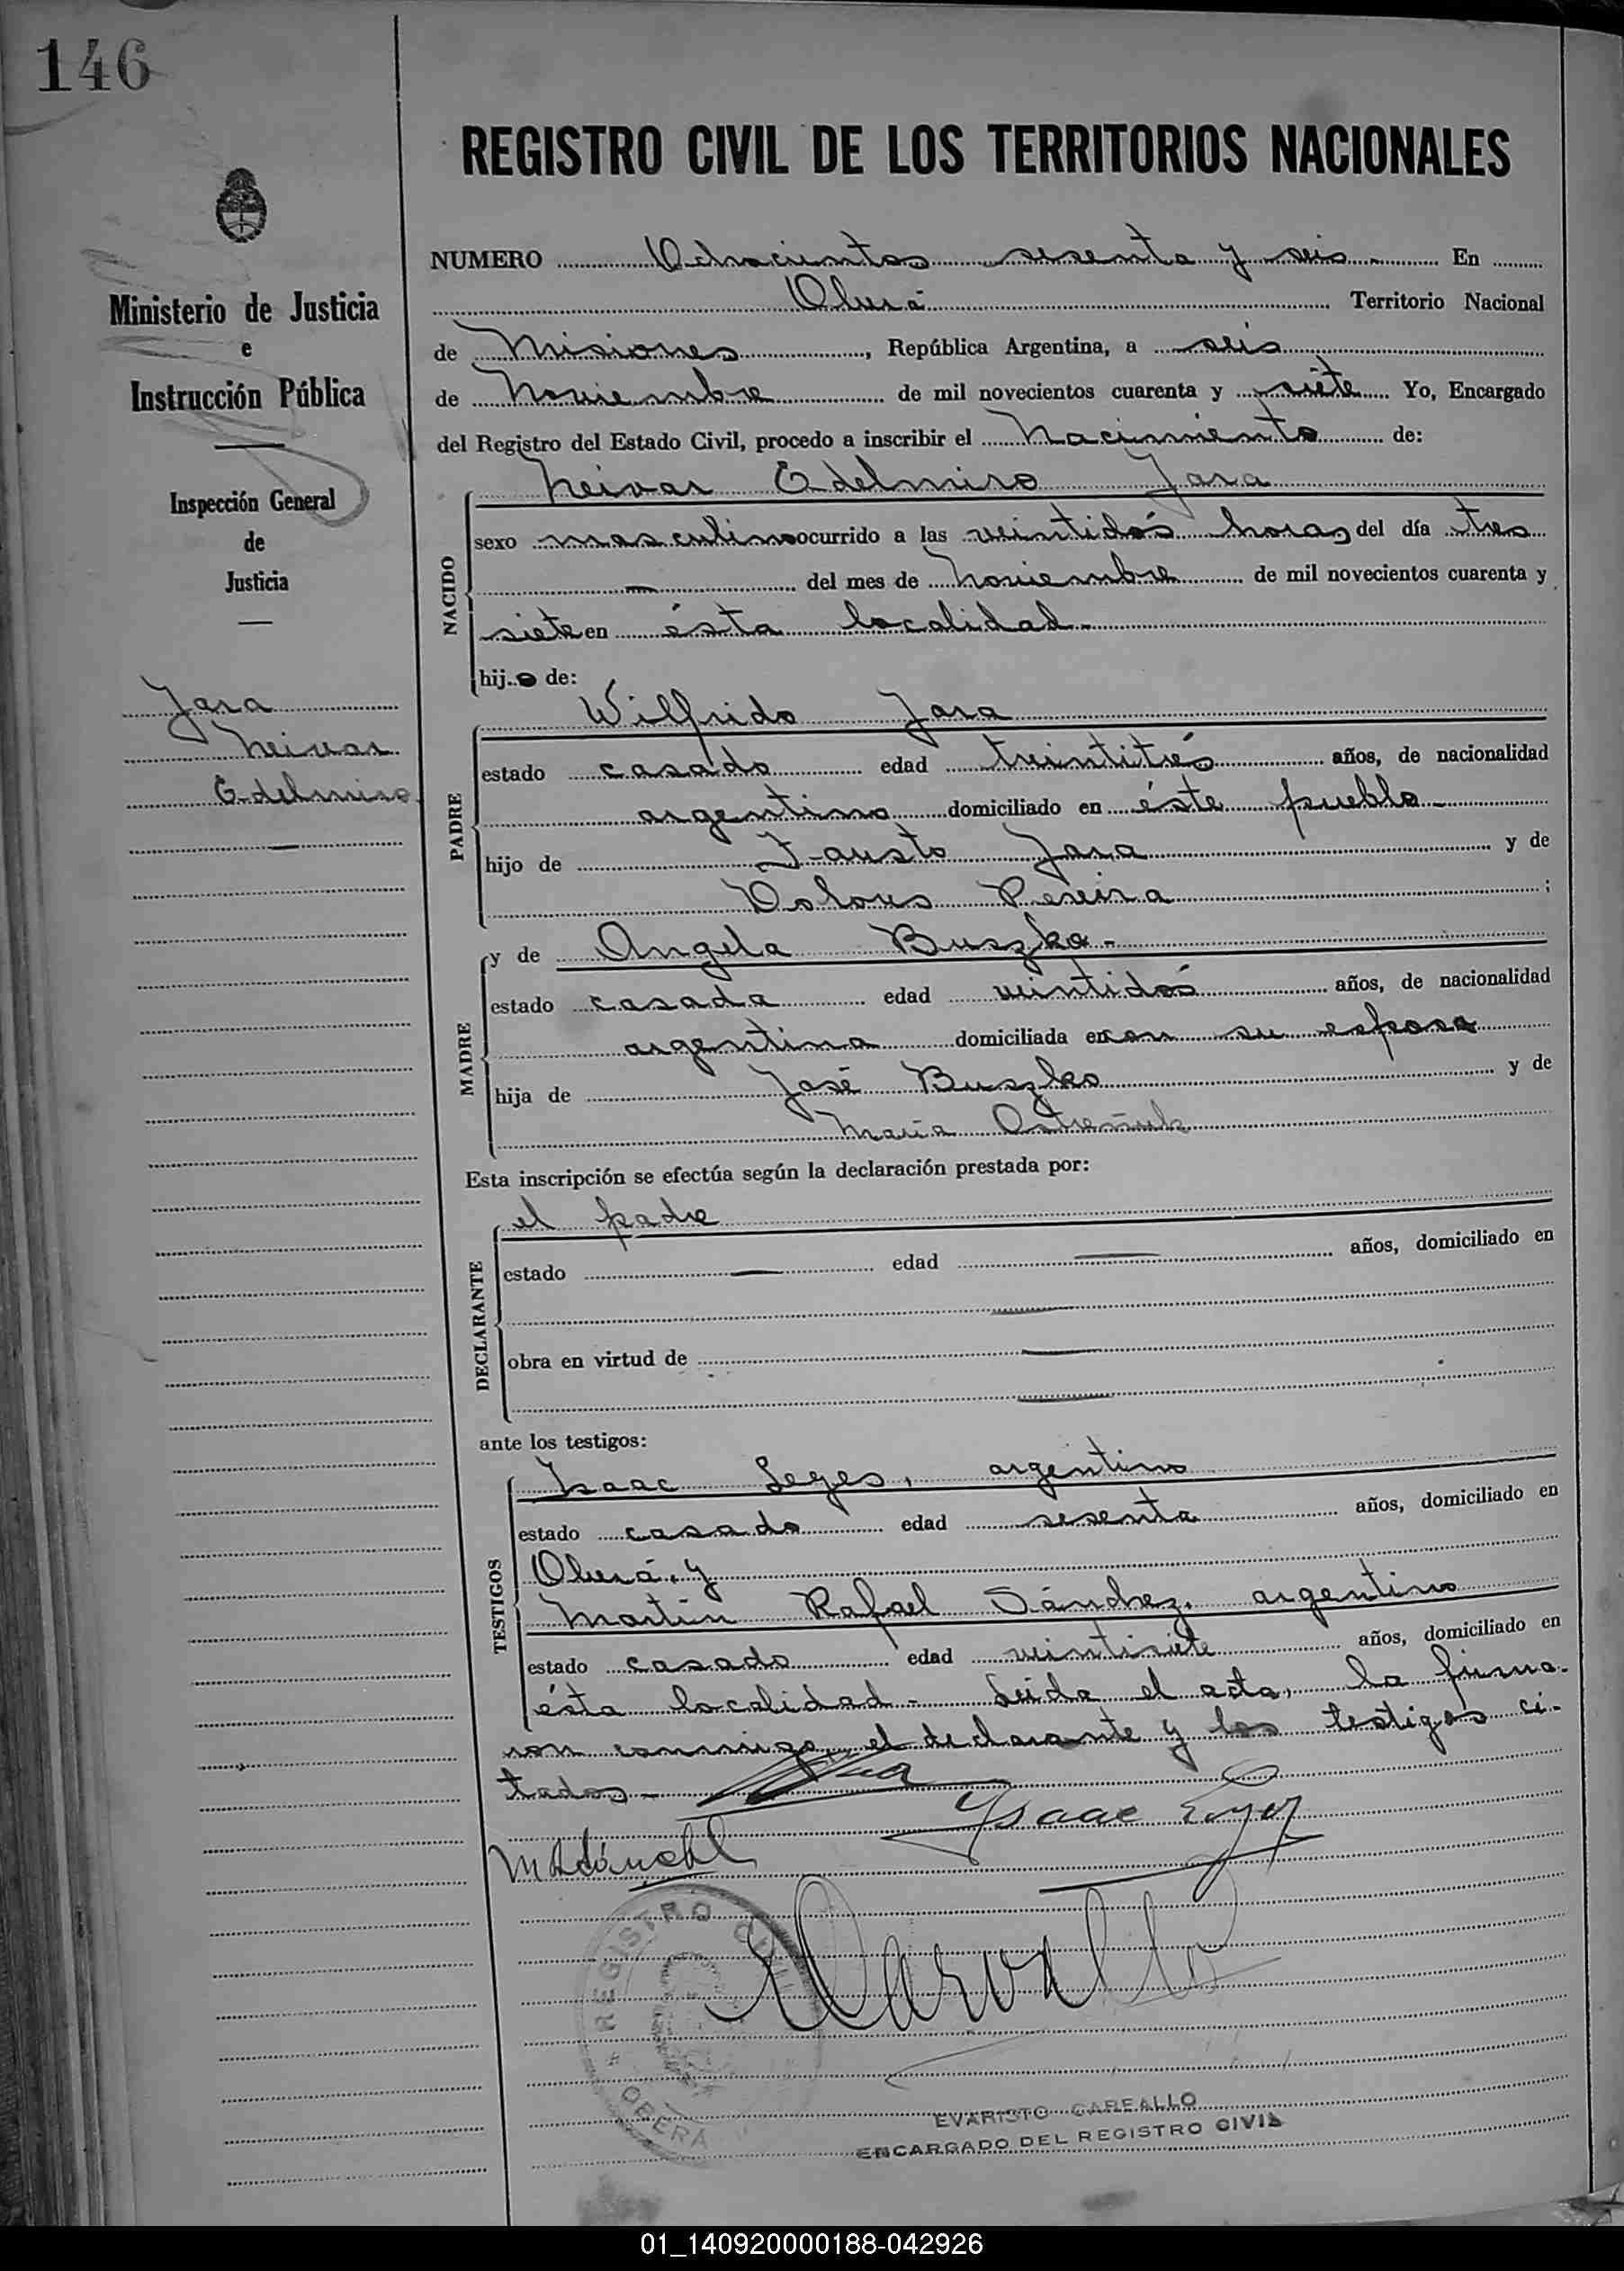 146
REGISTRO CIVIL DE LOS TERRITORIOS NACIONALES
Ministerio de Justicia
e
Instrucción Pública
Inspección General
de
Justicia
Jara
Neivar
Edelmiro
NUMERO Ochocientos sesenta y seis.- En
Oberá Territorio Nacional
de Misiones, República Argentina, a seis
de Noviembre de mil novecientos cuarenta y siete Yo, Encargado
del Registro del Estado Civil, procedo a inscribir el Nacimiento de:
NACIDO
Neivar Edelmiro Jara
sexo masculino ocurrido a las veintidós horas del día tres
— del mes de Noviembre de mil novecientos cuarenta y
siete en ésta localidad.-
hijo de:
PADRE
Wilfrido Jara
estado casado edad treintitrés años, de nacionalidad
argentino domiciliado en éste pueblo.-
hijo de Fausto Jara y de
Dolores Pereira;
MADRE
y de Angela Buszko.-
estado casada edad veintidós años, de nacionalidad
argentina domiciliada en con su esposo
hija de José Buszko y de
María
Esta inscripción se efectúa según la declaración prestada por:
DECLARANTE
el padre
estado — edad — años, domiciliado en
—
obra en virtud de —
—
ante los testigos:
TESTIGOS
Isaac Leyes, argentino
estado casado edad sesenta años, domiciliado en
Oberá, y
Martín Rafael Sánchez, argentino
estado casado edad veintisiete años, domiciliado en
ésta localidad.- Leída el acta, la firma-
ron conmigo, el declarante y los testigos ci-
tados.-
Ysaac Leyes
REGISTRO CIVIL
OBERÁ
EVARISTO CARBALLO
ENCARGADO DEL REGISTRO CIVIL
01_140920000188-042926